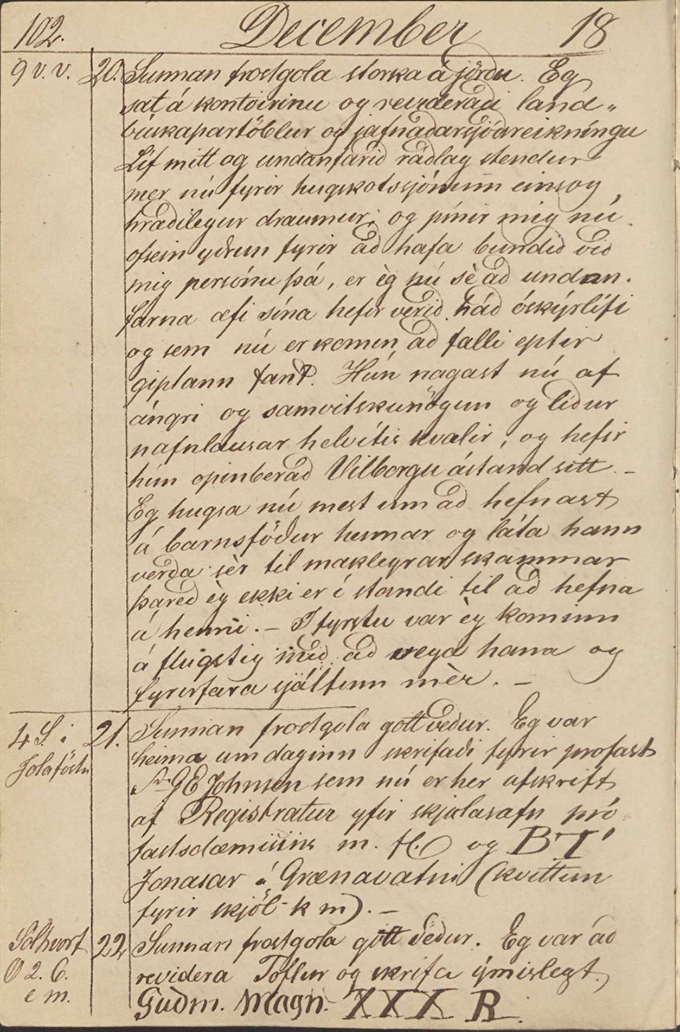 102. December 18
9 v. v. 20. Sunnan frostgola storka á jördu. Eg
sat á kontórinu og revideradi land-
búskapartöblur og jafnadarsjódsreikníngu
Líf mitt og undanfarid rádlag stendur
mer nú fyrir hugskotssjónum einsog
hrædilegur draumur; og pínir mig nú
ofsein ydrun fyrir ad hafa bundid vid
mig persónu þá, er èg nú sè ad undan-
farna æfi sína hefir verid hád óskýrlífi
og sem nú er komin ad falli eptir
giptann fant. Hún nagast nú af
ángri og samvitskunögun og lídur
nafnlausar helvítis kvalir; og hefir
hún opinberad Vilborgu ástand sitt. -
Eg hugsa nú mest um ad hefnast
á barnsfödur hennar og láta hann
verda sèr til maklegrar skammar
þared èg ekki er í standi til ad hefna
á henni. - I fyrstu var èg kominn
á flugstig med ad vega hana og
fyrirfara sjálfum mèr. -
4 S. í Jolaföstu 21. Sunnan frostgola gott vedur. Eg var
heima um daginn skrifadi fyrir profast
Sra G E Johnsen sem nú er her afskrift
af Registratur yfir skjalasafn pró-
fastsdæmisins m. fl. og BT'
Jonasar á Grænavatni (kvittun
fyrir skjöl k m). -
Solhvorf 2. 6. e m. 22. Sunnan frostgola gott vedur. Eg var ad
revidera Töflur og skrifa ýmislegt.
Gudm. Magn. XXX R.